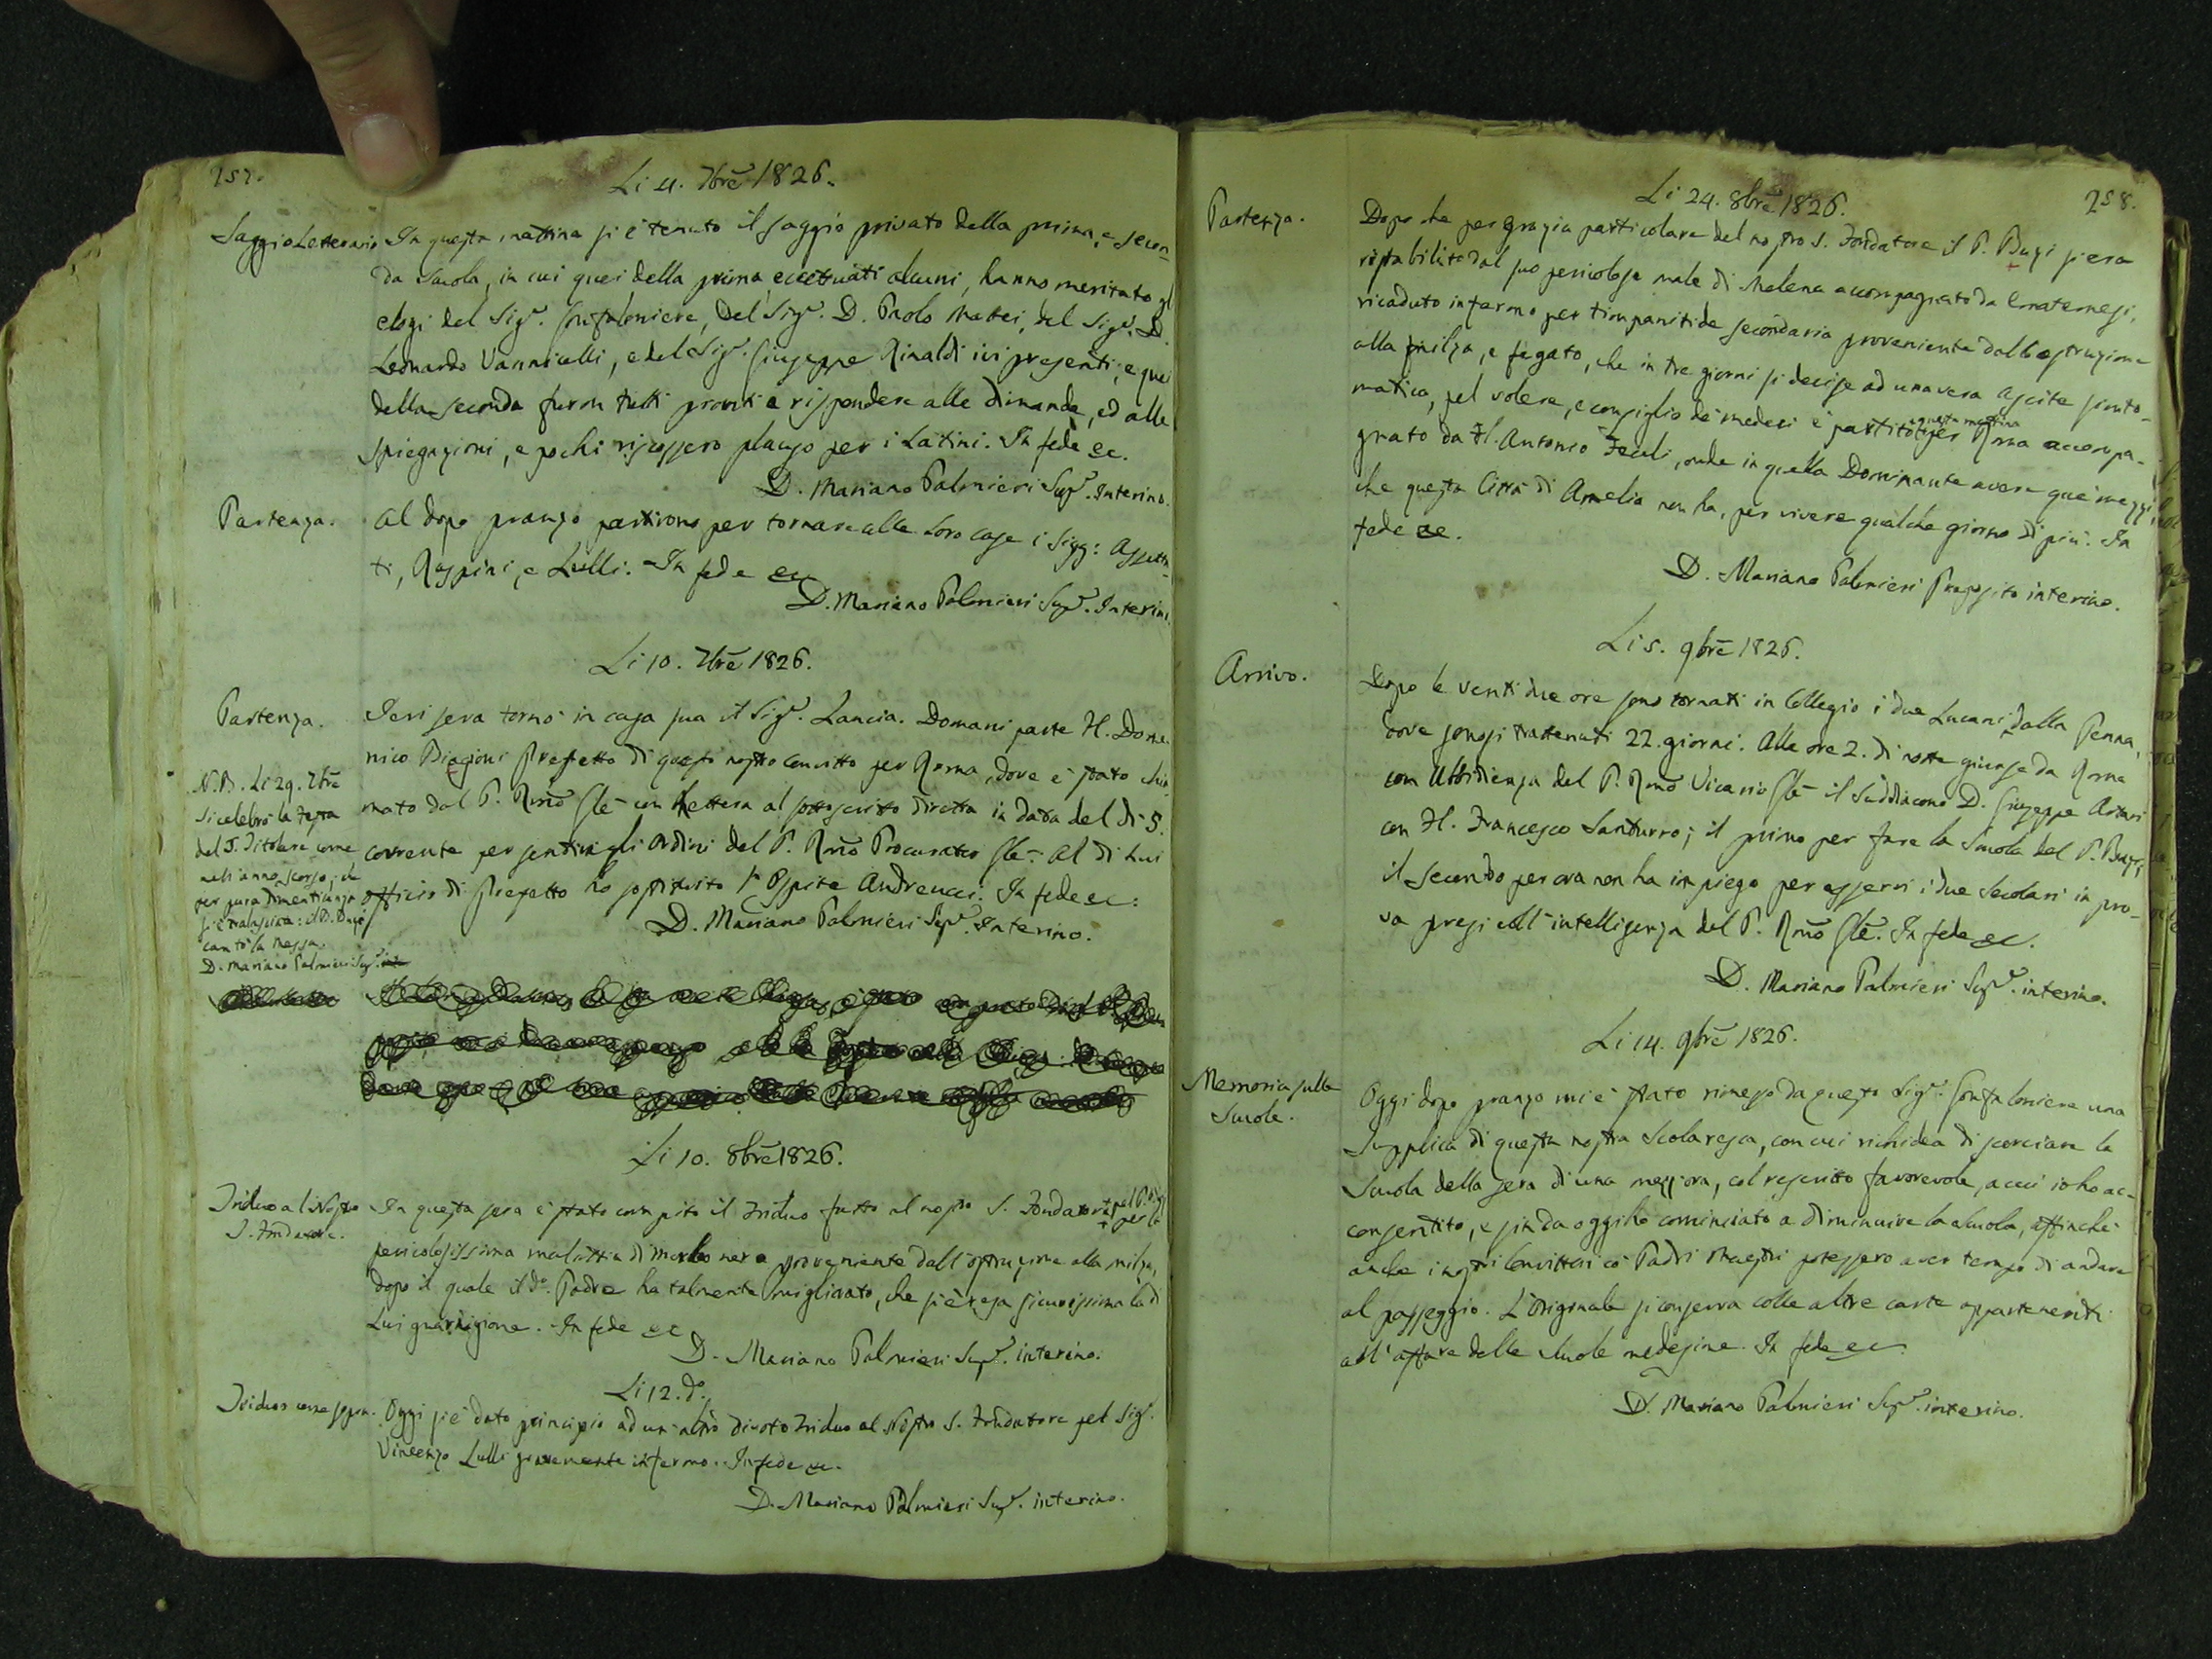 257.
Li 4. 7bre 1826.
Saggio Letterario
In questa mattina si è tenuto il saggio privato della prima, e secon-
da Scuola, in cui quei della prima, eccettuati alcuni, hanno meritato gl
elogj del Sigr. Gonfaloniere, del Sigr. D. Paolo Mattei, del Sigr. D.
Leonardo Vannicelli, e del Sigr. Giuseppe Rinaldi ivi presenti; e quei
della seconda furon tutti pronti a rispondere alle dimande, ed alle
spiegazioni, e pochi riscossero plauso per i Latini. In fede ec.
D. Mariano Palmieri Supr. Interino.
Partenza.
Al dopo pranzo partirono per tornare alle loro case i Sigg:
ti, Ruspini, e Lulli. In fede ec
D. Mariano Palmieri Supr. Interino.
Li 10. 7bre 1826.
Partenza.
Jeri sera tornò in casa sua il Sigr. Lancia. Domani parte Fl. Dome-
nico Biagioni Prefetto di questo nostro convitto per Roma, dove è stato chia-
mato dal P. Rmo Gle con lettera al sottoscritto diretta in data del dì 5.
corrente per sentire gli ordini del P. Rmo Procurator Gle. Al di lui
officio di Prefetto ho sostituito l'Ospite Andreucci. In fede ec:
D. Mariano Palmieri Supr. Interino.
N.B. Li 29. 7bre
si celebrò la festa
del S. Titolare come
nell'anno scorso, che
per pura dimenticanza
si è tralasciata: il P. Bugi
cantò la Messa.
D. Mariano Palmieri Supr. int.
Li 10. 8bre 1826.
Triduo al Nostro
S. Fondatore.
In questa sera è stato compito il Triduo fatto al nostro S. Fondatore pel P. Bugi per la
pericolosissima malattia di morbo nero proveniente dall'ostruzione alla milza,
dopo il quale il do. Padre ha talmente migliorato, che si è resa sicurissima la di
Lui guarigione. In fede ec
D. Mariano Palmieri Supr. interino.
Li 12. do.
Triduo come sopra.
Oggi si è dato principio ad un altro divoto Triduo al Nostro S. Fondatore pel Sigr.
Vincenzo Lulli gravemente infermo. In fede ec.
D. Mariano Palmieri Supr. interino.
258.
Li 24. 8bre 1826.
Partenza.
Dopo che per grazia particolare del nostro S. Fondatore il P. Bugi s'era
ristabilito dal suo pericoloso male di Melena accompagnato da Ematemesi,
ricaduto infermo per timpanitide secondaria proveniente dall'ostruzione
alla milza, e fegato, che in tre giorni si decise ad una vera Ascite sinto-
matica, pel volere, e consiglio de' medici è partito questa mattina per Roma accompa-
gnato da Fl. Antonio Feculi, onde in quella Dominante avere que' mezzi,
che questa Città di Amelia non ha, per vivere qualche giorno di più. In
fede ec.
D. Mariano Palmieri Preposito interino.
Li 5. 9bre 1826.
Arrivo.
Dopo le venti due ore sono tornati in Collegio i due Lucani dalla Penna,
dove sonosi trattenuti 22. giorni. Alle ore 2. di notte giunse da Roma
con Ubbidienza del P. Rmo Vicario Gle il Suddiacono D. Giuseppe Artari
con Fl. Francesco Santurro; il primo per fare la Scuola del P. Bugi,
il secondo per ora non ha impiego per esservi i due Secolari in pro-
va presi coll'intelligenza del P. Rmo Gle. In fede ec.
D. Mariano Palmieri Supr. interino.
Li 14. 9bre 1826.
Memoria sulle
Scuole.
Oggi dopo pranzo mi è stato rimesso da questo Sigr. Gonfaloniere una
Supplica di questa nostra Scolaresca, con cui richiedea di scorciare la
Scuola della sera di una mezz'ora, col rescritto favorevole, a cui io ho ac-
consentito, e sin da oggi ho cominciato a diminuire la Scuola, affinchè
anche i nostri Convittori co' Padri Maestri potessero aver tempo di andare
al passeggio. L'Originale si conserva colle altre carte appartenenti
all'affare delle Scuole medesime. In fede ec
D. Mariano Palmieri Supr. interino.